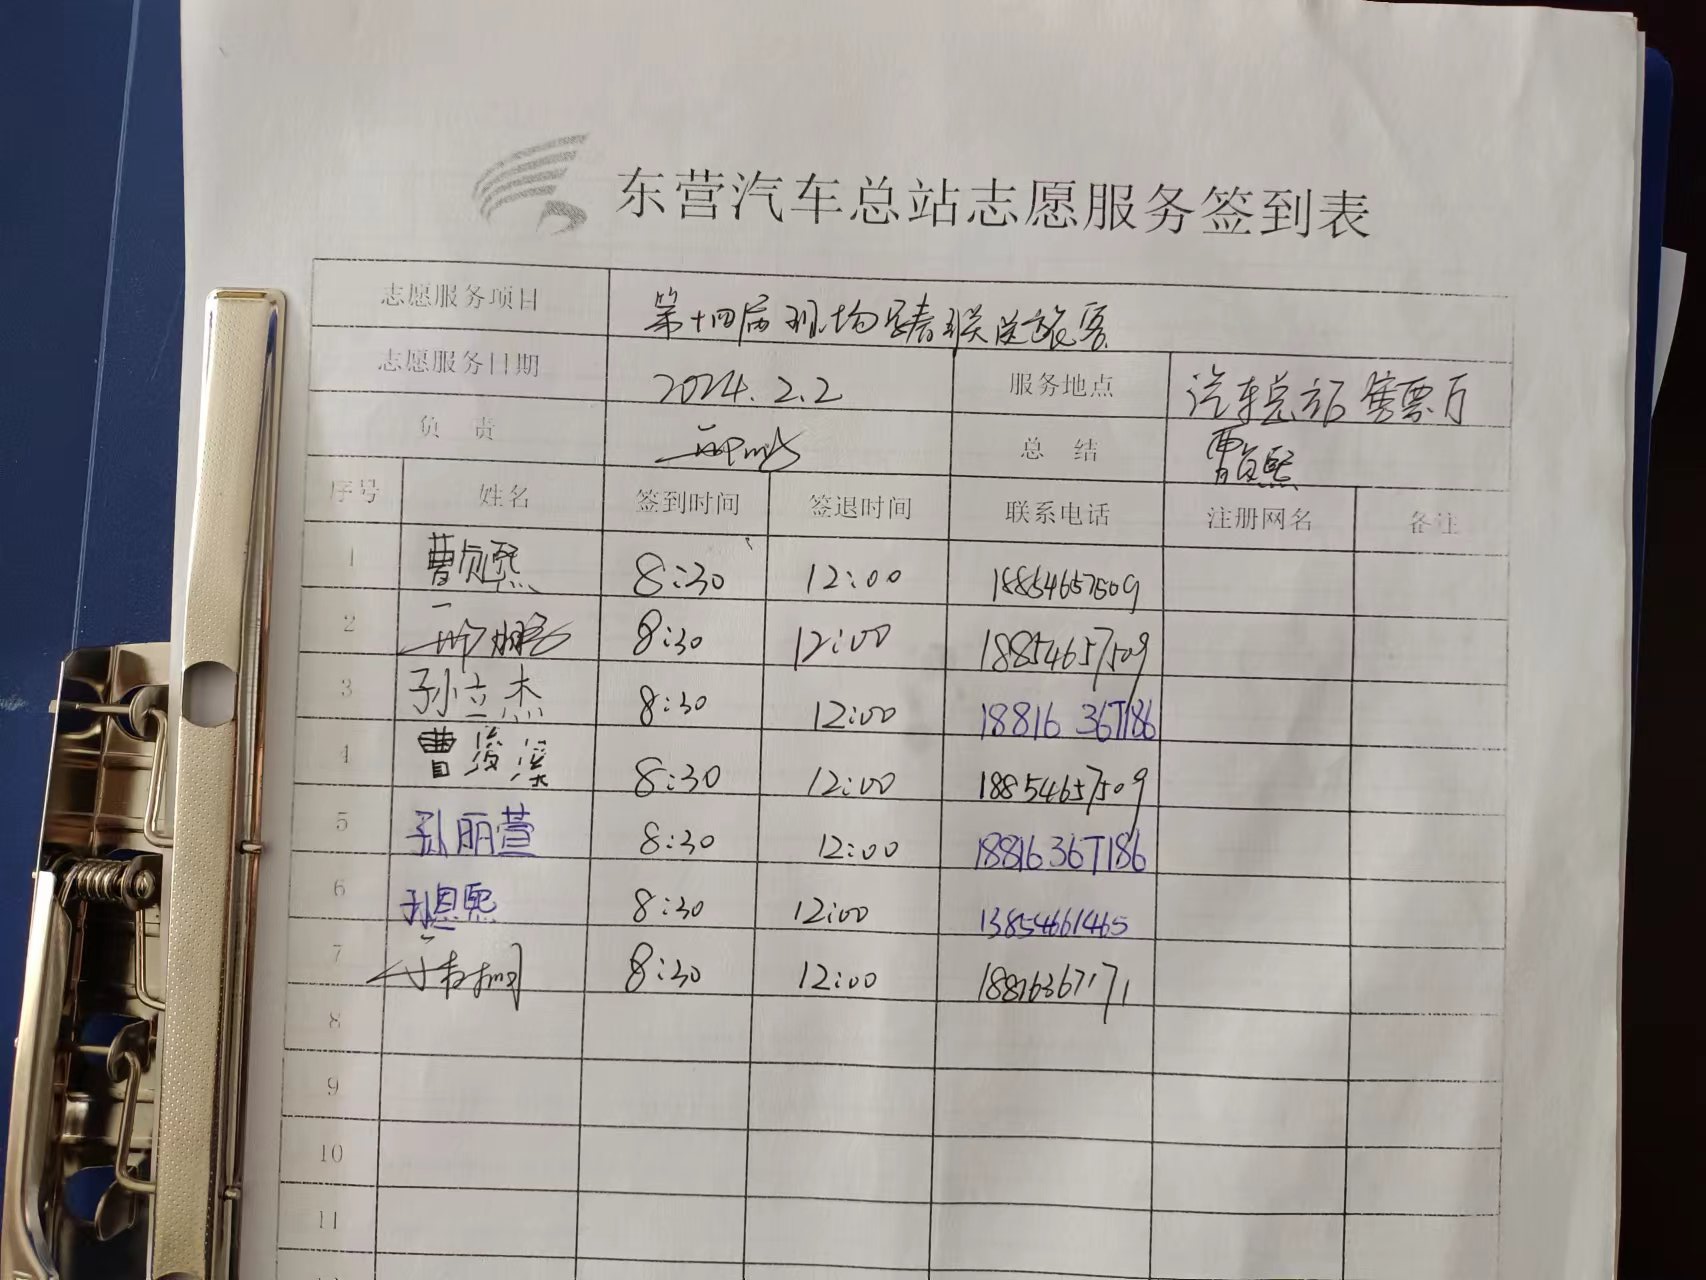 东营汽车总站志愿服务签到表
志愿服务项目 第十四届现场写春联送旅客
志愿服务日期 2024.2.2 服务地点 汽车总站售票厅
负 责 总 结 曹贞熙
序号 姓名 签到时间 签退时间 联系电话 注册网名 备注
1 曹贞熙 8:30 12:00 18854657509
2 8:30 12:00 18854657509
3 孙立杰 8:30 12:00 18816367186
4 曹浚溪 8:30 12:00 18854657509
5 孙丽萱 8:30 12:00 18816367186
6 孙恩熙 8:30 12:00 13854661465
7 8:30 12:00 18816367171
8
9
10
11